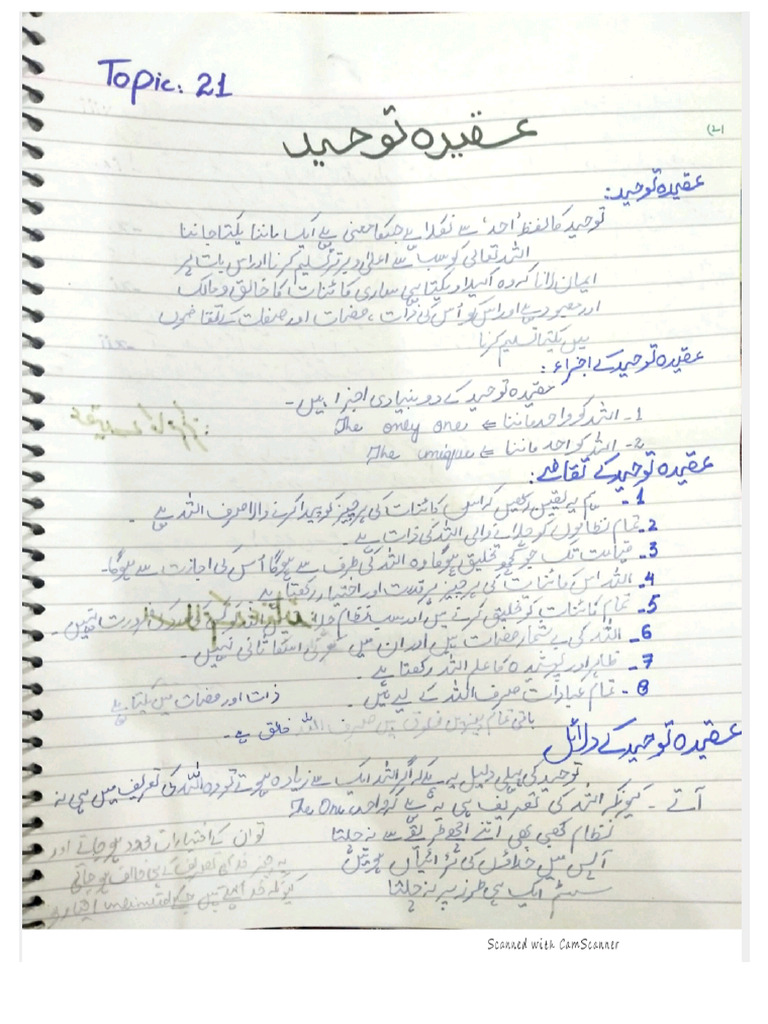 Topic: 21
عقیدہ توحید
(21)
عقیدہ توحید:
توحید کا لفظ 'احد' سے نکلا ہے جسکا معنی ہے ایک ماننا یکتا جاننا
اللہ تعالی کو سب سے اعلی و برتر تسلیم کرنا اور اس بات پر
ایمان لانا کہ وہ اکیلا و یکتا ہی ساری کائنات کا خالق و مالک
اور معبود ہے اور اس کو اُس کی ذات، صفات اور صفات کے تقاضوں
میں یکتا تسلیم کرنا
عقیدہ توحید کے اجزاء:
عقیدہ توحید کے دو بنیادی اجزاء ہیں۔
1- اللہ کو واحد ماننا ⇐ The only one
2- اللہ کو احد ماننا ⇐ The unique
عقیدہ توحید کے تقاضے:
1- ہم یہ یقین رکھیں کہ اس کائنات کی ہر چیز کو پیدا کرنے والا صرف اللہ ہے۔
2- تمام نظاموں کو چلانے والی اللہ کی ذات ہے۔
3- قیامت تک جو کچھ تخلیق ہوگا وہ اللہ کی طرف سے ہوگا اُس کی اجازت سے ہوگا۔
4- اللہ اس کائنات کی ہر چیز پر قدرت اور اختیار رکھتا ہے
5- تمام کائنات کو تخلیق کرنے میں اور سب نظام کی ضرورت نہیں۔
6- اللہ کی بے شمار صفات ہیں اور ان میں کوئی اسکا ثانی نہیں۔
7- ظاہر اور پوشیدہ کا علم اللہ رکھتا ہے۔
8- تمام عبادات صرف اللہ کے لیے ہیں۔ ذات اور صفات میں یکتا ہے
باقی تمام چیزیں مخلوق ہیں صرف اللہ خالق ہے۔
عقیدہ توحید کے دلائل
توحید کی پہلی دلیل یہ ہے کہ اگر اللہ ایک سے زیادہ ہوتے تو وہ اللہ کی تعریف میں ہی نہ
آتے۔ کیونکہ اللہ کی تعریف ہی یہ ہے کہ وہ واحد The One
نظام کبھی بھی اتنے اچھے طریقے سے نہ چلتا
تو ان کے اختیارات محدود ہو جاتے اور
آپس میں خداؤں کی لڑائیاں ہوتیں
یہ چیز خدا کی تعریف کے ہی خلاف ہو جاتی
سسٹم ایک ہی طرز پر نہ چلتا
Scanned with CamScanner